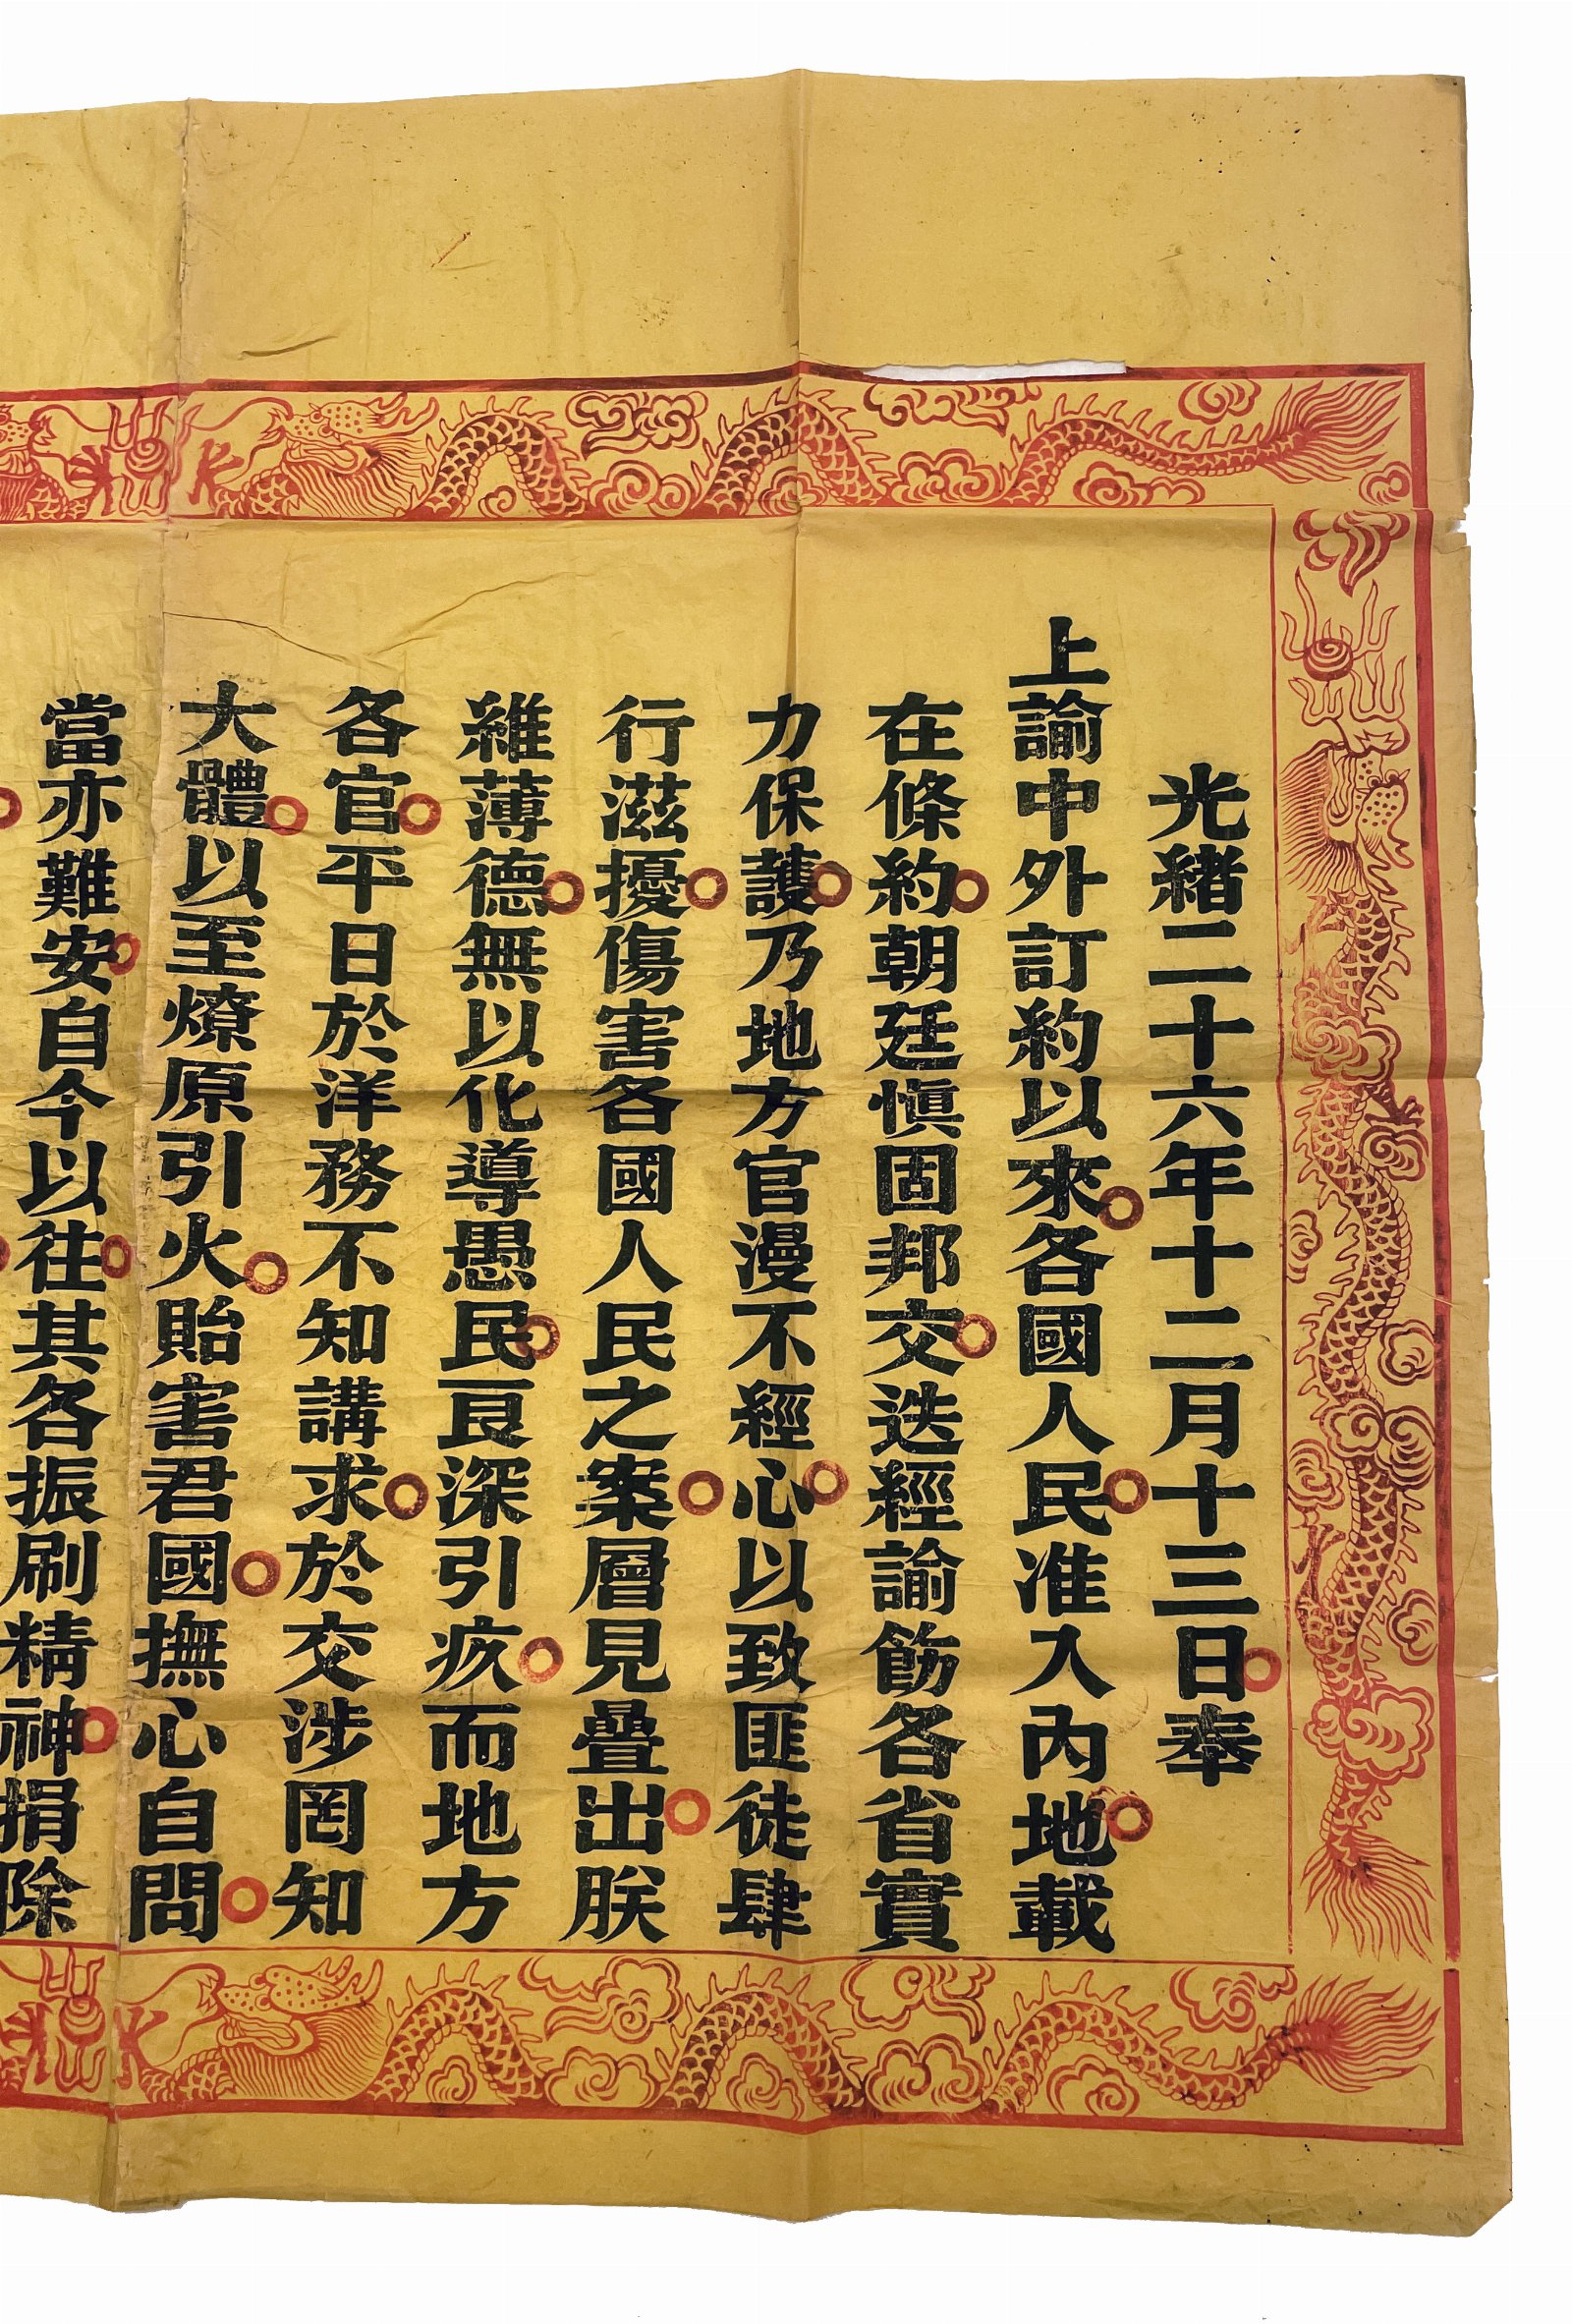 光緒二十六年十二月十三日奉
上諭中外訂約以來各國人民准入內地載
在條約朝廷慎固邦交迭經諭飭各省實
力保護乃地方官漫不經心以致匪徒肆
行滋擾傷害各國人民之案層見疊出朕
維薄德無以化導愚民良深引疚而地方
各官平日於洋務不知講求於交涉罔知
大體以至燎原引火貽害君國撫心自問
當亦難安自今以往其各振刷精神捐除